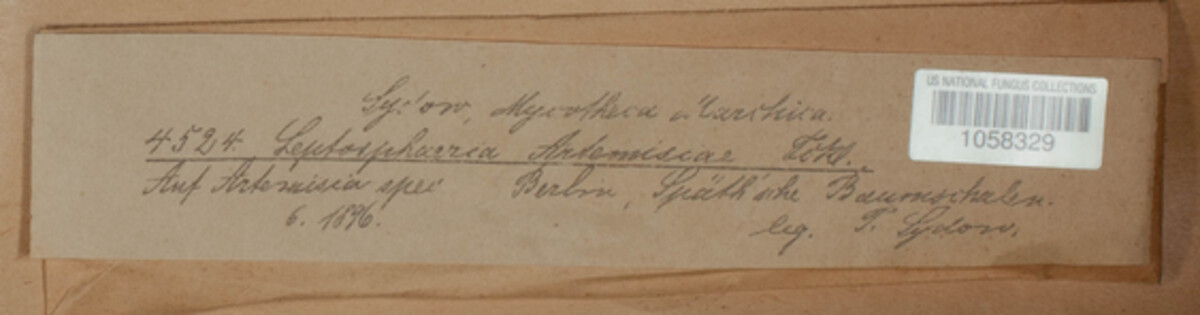 Sydow, Mycotheca Marchica.
4524. Leptosphaeria Artemisiae Fckl.
Auf Artemisia spec Berlin, Späth'sche Baumschulen.
6. 1896. leg. P. Sydow.
US NATIONAL FUNGUS COLLECTIONS
1058329